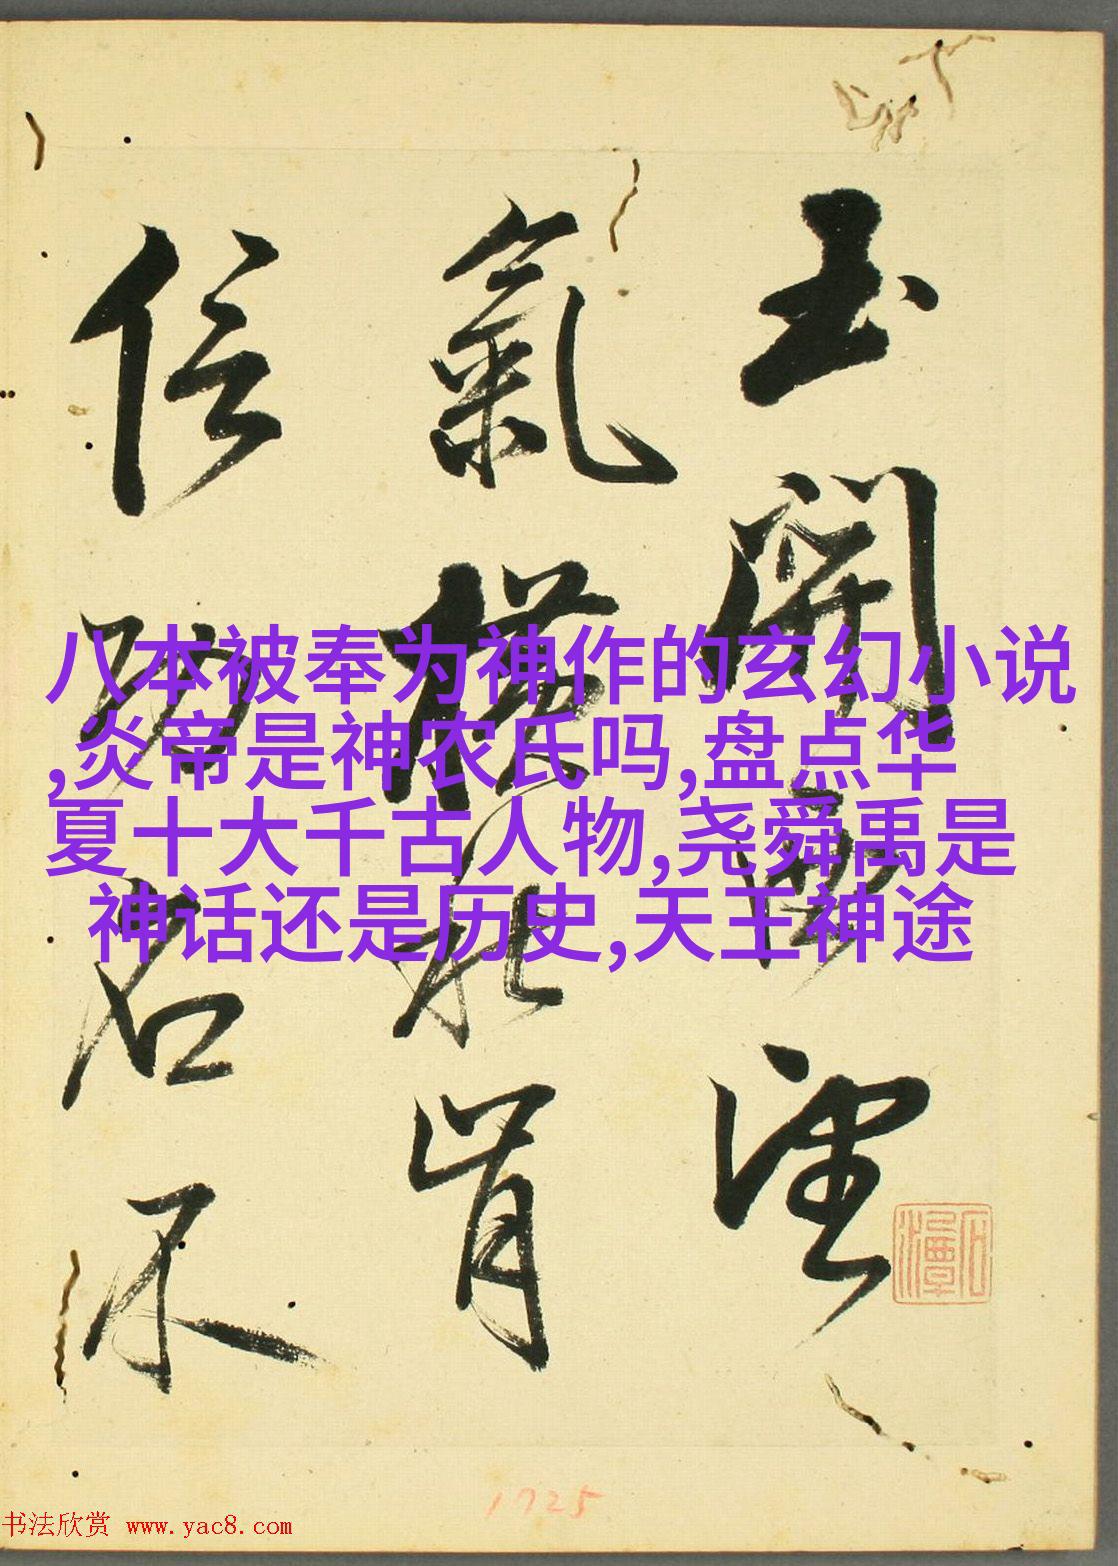 玉關西望
氣橫秋肯
信功名不
八本被奉为神作的玄幻小说
,炎帝是神农氏吗,盘点华
夏十大千古人物,尧舜禹是
神话还是历史,天王神途
1725
书法欣赏 www.yac8.com